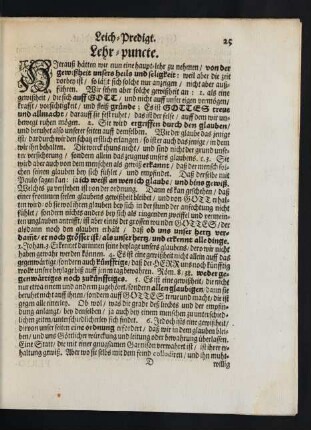 Leich-Predigt. 25
Lehr-puncte.
Hierauß hätten wir nun eine haupt-lehr zu nehmen / von der
gewißheit unsers heils und seligkeit: weil aber die zeit
vorbey ist / so läst sich solche nur anzeigen / nicht aber auß-
führen. Wir sehen aber solche gewißheit an: 1. als eine
gewißheit / die sich auff GOTT / und nicht auff unser eigen vermögen /
krafft / vorsichtigkeit / und fleiß gründe: Es ist GOTTES treue
und allmacht / darauff sie bestruhet / das ist der felse / auff dem wir un-
bewegt ruhen mögen. 2. Sie wird ergriffen durch den glauben /
und beruhet also unserer seiten auff demselben. Wie der glaube das jenige
ist / dardurch wir den schatz erstlich erlangen / so ist er auch das jenige / in dem
wir ihn behalten. Die werck thuns nicht / und sind nicht der grund unse-
rer versicherung / sondern allein das zeugnus unsers glaubens. 3. Sie
wird auch also angesehen / als gewiß erkannt / daß der mensch sei-
nen seinen glauben bey sich fühlet / und empfindet. Daß derselbe mit
Paulo sagen kan: ja ich weiß an wen ich glaube / und bins gewiß.
Welches zu verstehen ist von der ordnung. Dann es kan geschehen / daß
einer frommen seinen glaubens gewißheit bleibet / und von GOTT erhal-
ten wird / ob er wol solchen glauben bey sich in der stunde der anfechtung nicht
fühlet / sondern nichts anders bey sich als ringenden zweiffel und vermein-
ten unglauben antrifft / aber an dem ernstlichen verlangen GOTTES / der
alsdann noch den glauben erhält / daß ob uns unser hertz ver-
damt / er noch grösser ist / als unser hertz / und erkennt alle dinge.
1. Johan. 3. Erkennet darinnen seine beylage unsers glaubens / dero wir nicht
haben gewahr werden können. 4. Es ist eine gewißheit nicht allein auff das
gegenwärtige / sondern auch künfftige / daß der HERR uns noch künfftig
wolle unser beylage biß auff jenen tag bewahren. Röm. 8. 38. weder ge-
genwärtiges noch zukünfftiges. 5. Es ist eine gewißheit / die nicht
etwa nur einem und dem andern zugehöret / sondern allen glaubigen / dann sie
beruhet nicht auff ihnen / sondern auff GOTTES treue und macht / die ist
gegen alle einerley. Ob wol / was die grösse deß liechts und der empfin-
dung anlangt / bey demselben / ja auch bey einem menschen zu unterschied-
lichen zeiten / unterschiedlich er sich findet. 6. Jedoch ists eine gewißheit /
die von unser seiten eine ordnung erfordert / daß wir in dem glauben bleiben
/ und uns Göttlicher würckung und leitung oder bewahrung überlassen.
Eine Statt / die mit einer gnugsamen Garnison verwahret ist / ist ihrer er-
haltung gewiß. Aber wo sie selbs mit dem feind colludiren / und ihn muht-
D willig